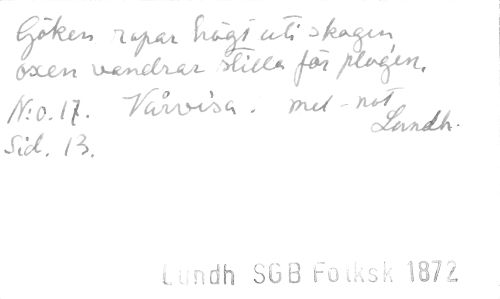 Göken ropar högt uti skogen
oxen vandrar stilla för plogen.
N:o. 17. Vårvisa. mel-not
Lundh.
Sid. 13.
Lundh SGB Folksk 1872